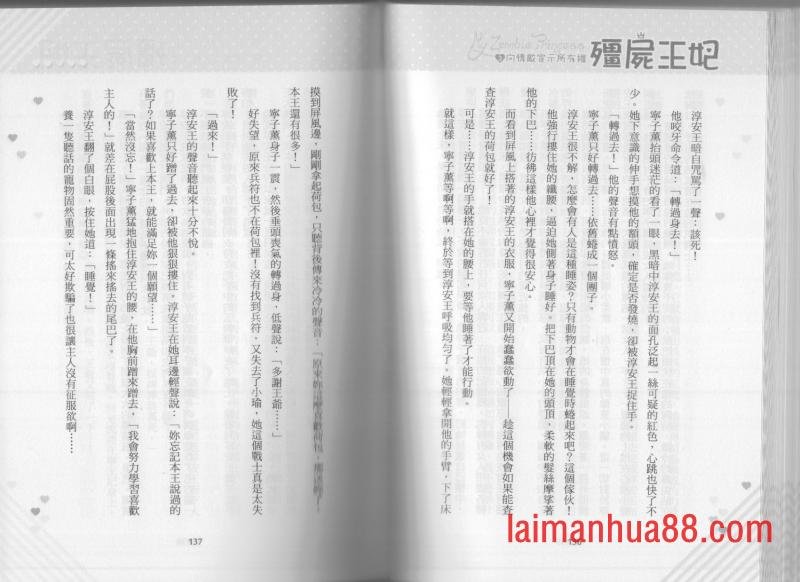 My Zombie Princess
3向情敵宣示所有權
殭屍王妃
淳安王暗自咒罵了一聲：該死！
他咬牙命令道：「轉過身去！」
寧子薰抬頭迷茫的看了一眼，黑暗中淳安王的面孔泛起一絲可疑的紅色，心跳也快了不
少。她下意識的伸手想摸他的額頭，確定是否發燒，卻被淳安王捉住手。
「轉過去！」他的聲音有點憤怒。
寧子薰只好轉過去……依舊蜷成一個團子。
淳安王很不解，怎麼會有人是這種睡姿？只有動物才會在睡覺時蜷起來吧？這個傢伙！
他強行摟住她的纖腰，逼迫她側著身子睡好。把下巴頂在她的頭頂，柔軟的髮絲摩挲著
他的下巴……彷彿這樣他心裡才覺得很安心。
而看到屏風上搭著的淳安王的衣服，寧子薰又開始蠢蠢欲動了——趁這個機會如果能查
查淳安王的荷包就好了！
可是……淳安王的手就搭在她的腰上，要等他睡著了才能行動。
就這樣，寧子薰等啊等啊，終於等到淳安王呼吸均勻了。她輕輕拿開他的手臂，下了床
136
摸到屏風邊，剛剛拿起荷包，只聽背後傳來冷冷的聲音：「原來妳這麼喜歡荷包，
本王還有很多！」
寧子薰身子一震，然後垂頭喪氣的轉過身，低聲說：「多謝王爺……」
好失望，原來兵符也不在荷包裡！沒有找到兵符，又失去了小瑜，她這個戰士真是太失
敗了！
「過來！」
淳安王的聲音聽起來十分不悅。
寧子薰只好蹭了過去，卻被他狠狠摟住。淳安王在她耳邊輕聲說：「妳忘記本王說過的
話了？如果喜歡上本王，就能滿足妳一個願望……」
「當然沒忘！」寧子薰猛地抱住淳安王的腰，在他胸前蹭來蹭去，「我會努力學習喜歡
主人的！」就差在屁股後面出現一條搖來搖去的尾巴了。
淳安王翻了個白眼，按住她道：「睡覺！」
養一隻聽話的寵物固然重要，可太好欺騙了也很讓主人沒有征服欲啊……
137
laimanhua88.com